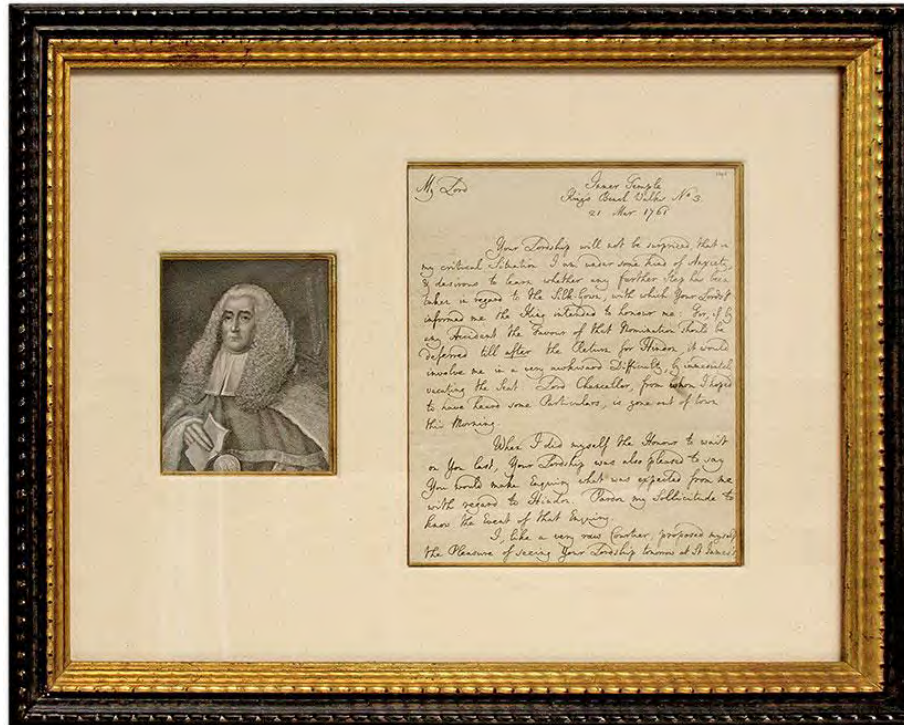 My Lord
Inner Temple
King's Bench Walks No 3.
21 Mar. 1761
Your Lordship will not be surprized, that in
my critical Situation I am under some kind of Anxiety,
& desirous to learn whether any further Step has been
taken in regard to the Silk Gown, with which Your Lordsp
informed me the King intended to honour me: For, if by
any Accident the Favour of that Nomination should be
deferred till after the Return for Hindon, it would
involve me in a very awkward Difficulty, by immediately
vacating the Seat. Lord Chancellor, from whom I hoped
to have heard some Particulars, is gone out of town
this Morning.
When I did myself the Honour to wait
on You last, Your Lordship was also pleased to say
You would make Enquiry what was expected from me
with regard to Hindon. Pardon my Sollicitude to
know the Event of that Enquiry.
I, like a very raw Courtier, proposed myself
the Pleasure of seeing Your Lordship tomorrow at St James's